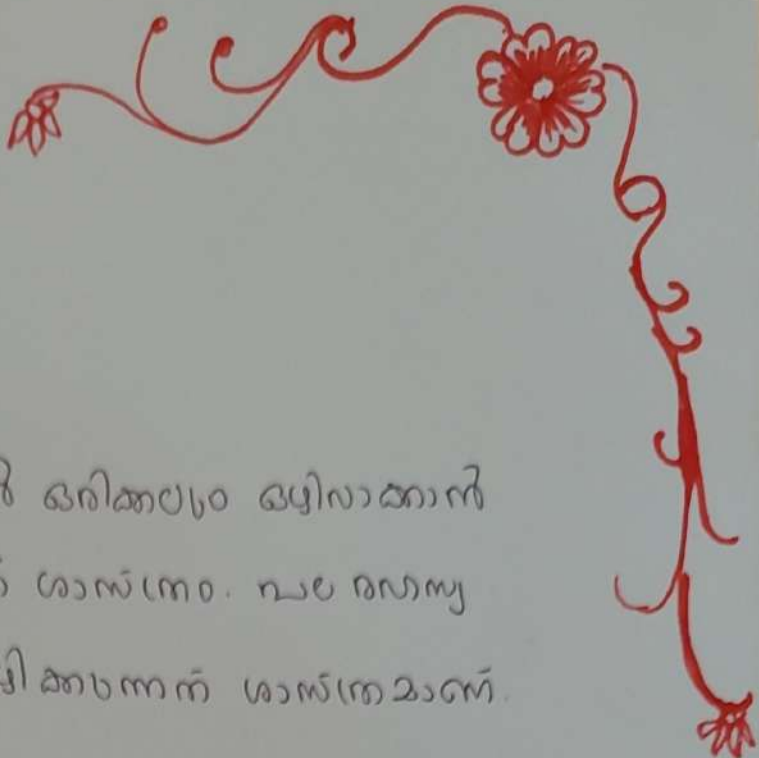 ഒരിക്കലും ഒഴിവാക്കാൻ
ശാസ്ത്രം. പല രഹസ്യ
ശാസ്ത്രമാണ്.